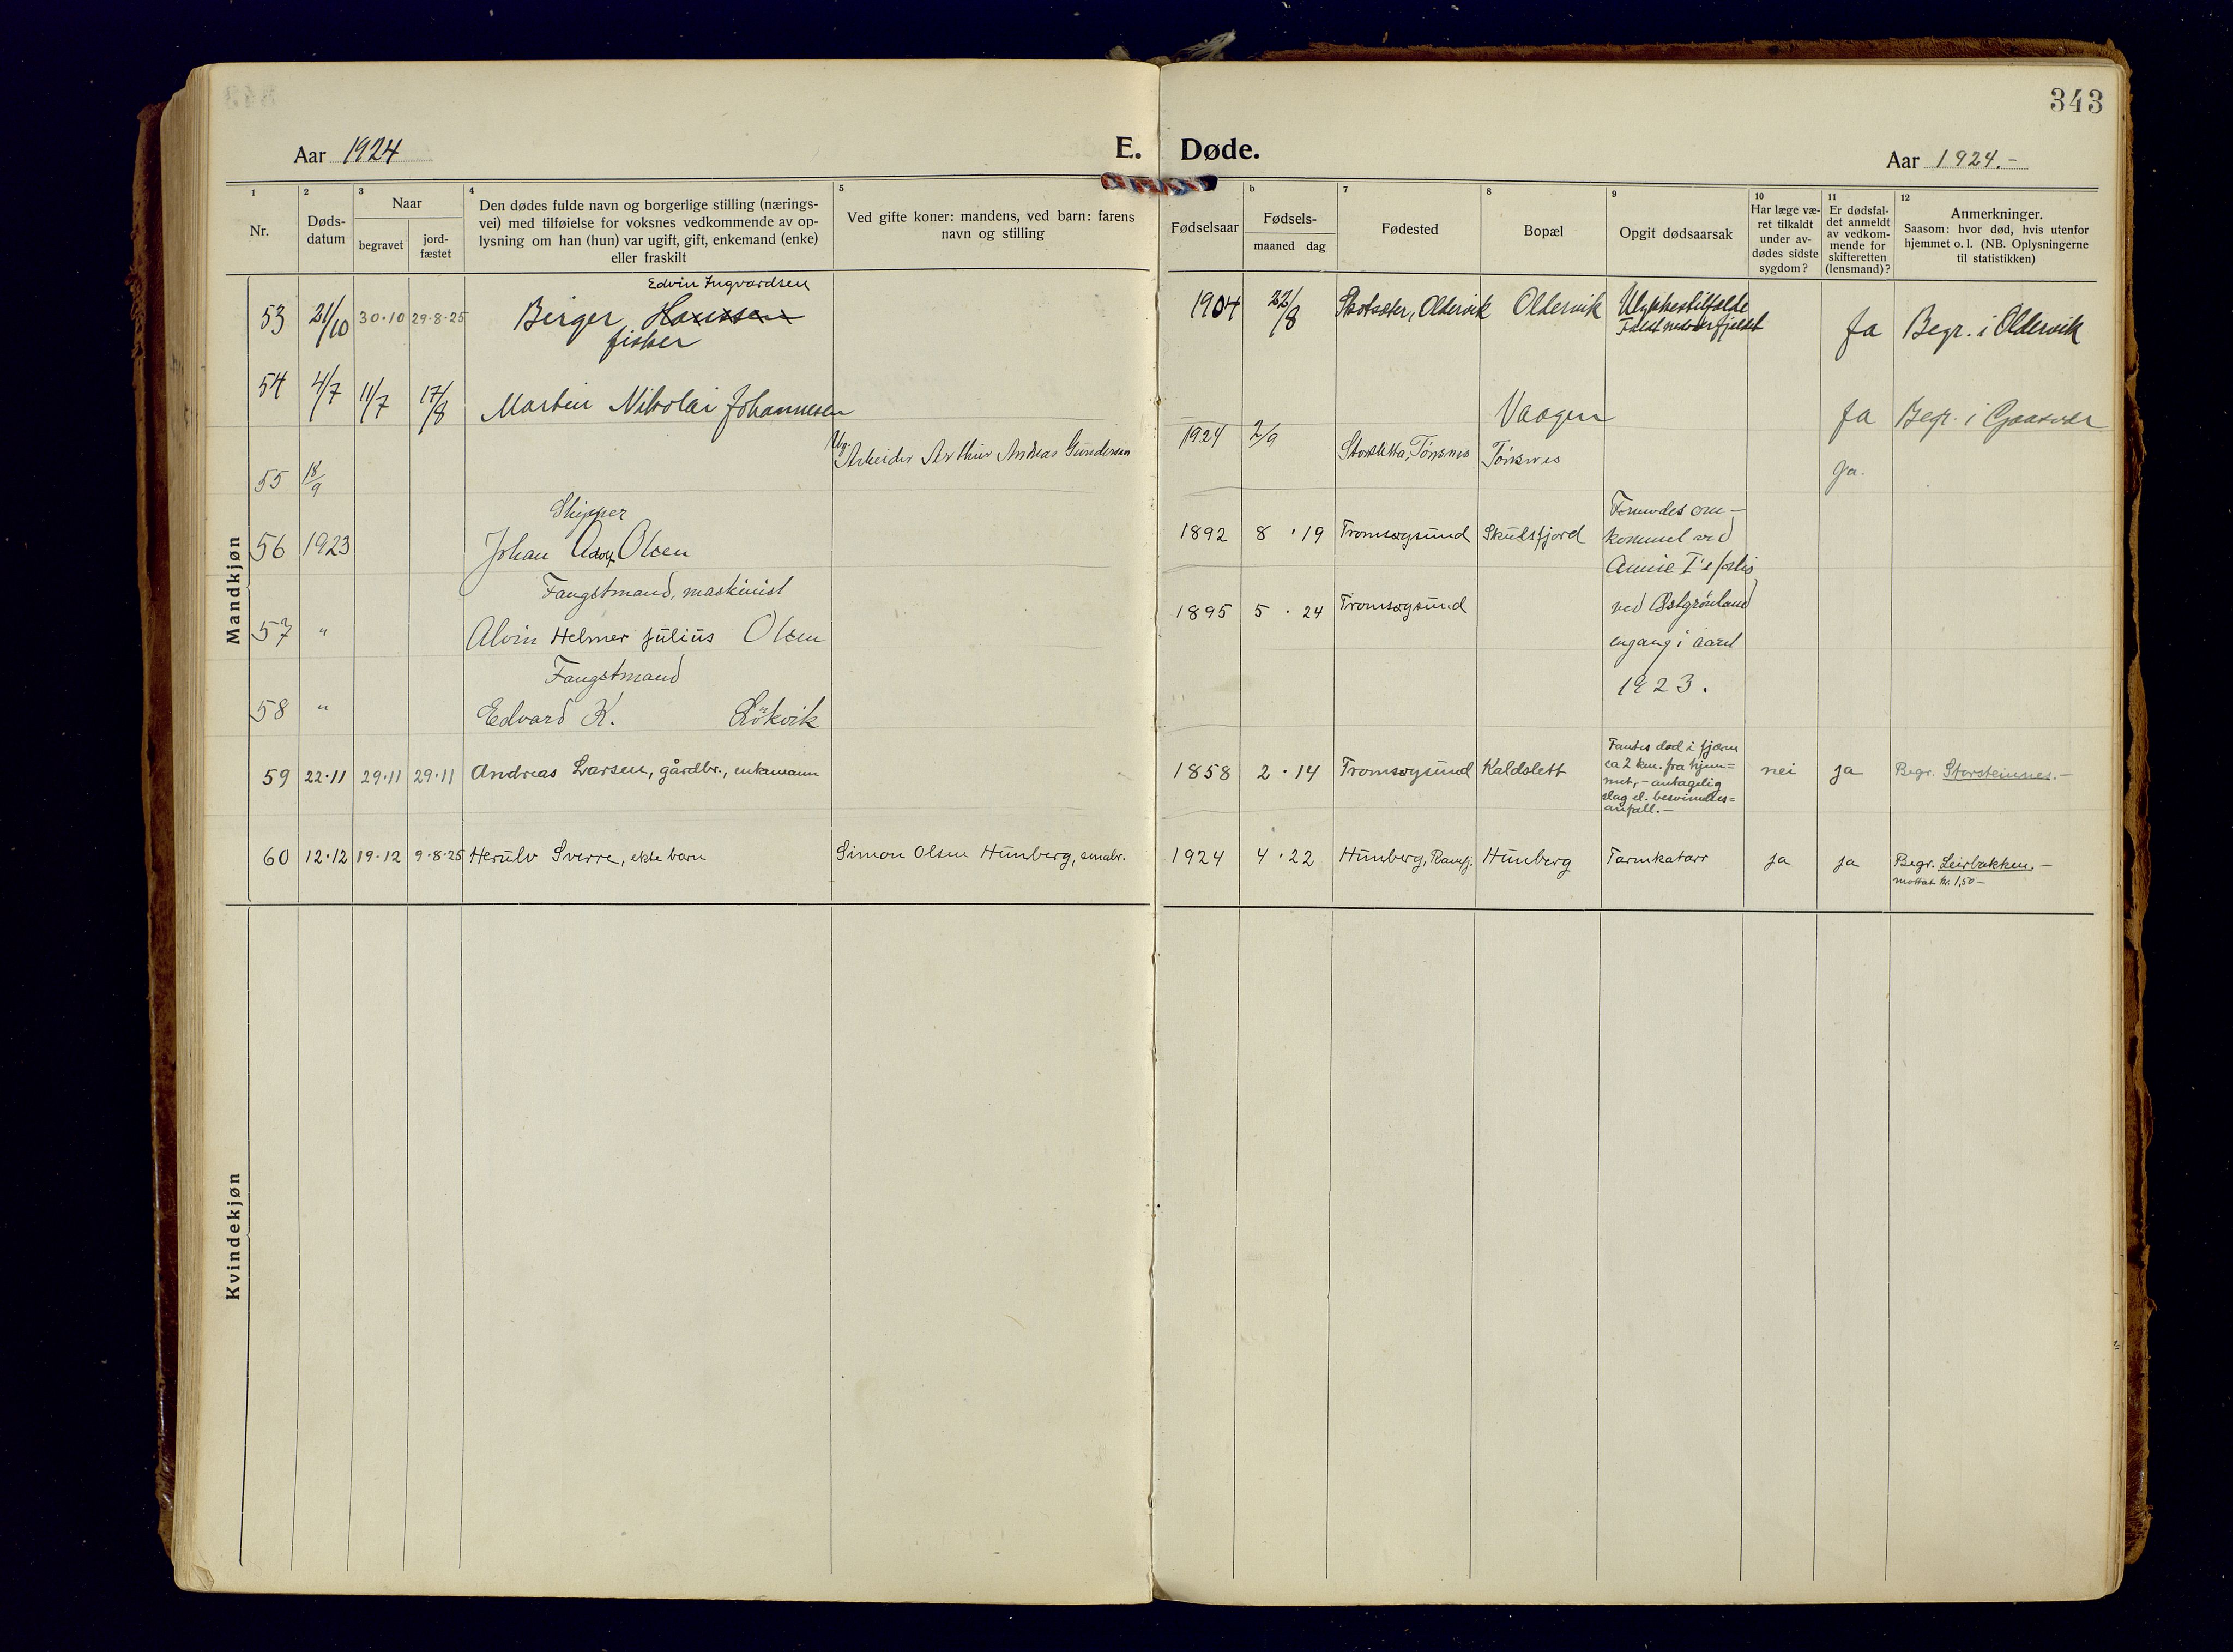 343
Aar 1924
E. Døde.
Aar 1924.-
1 2 3 4 5 b 7 8 9 10 11 12
Nr.
Døds-
datum
Naar
begravet
jord-
fæstet
Den dødes fulde navn og borgerlige stilling (nærings-
vei) med tilføielse for voksnes vedkommende av op-
lysning om han (hun) var ugift, gift, enkemand (enke)
eller fraskilt
Ved gifte koner: mandens, ved barn: farens
navn og stilling
Fødselsaar
Fødsels-
maaned dag
Fødested
Bopæl
Opgit dødsaarsak
Har læge væ-
ret tilkaldt
under av-
dødes sidste
sygdom?
Er dødsfal-
det anmeldt
av vedkom-
mende for
skifteretten
(lensmand)?
Anmerkninger.
Saasom: hvor død, hvis utenfor
hjemmet o. l. (NB. Oplysningerne
til statistikken)
Mandkjøn
Edvin Ingvardsen
53 21/10 30·10 29·8·25 Birger Hanssen 1904 22/8 Skotsæter, Oldervik Oldervik Ulykkestilfælde
fisker Ja Begr. i Oldervik
54 4/7 11/7 17/8 Martin Nikolai Johannesen Vaagen Ja Begr. i Gaasvær
Ug.
55 18/9 Arbeider Arthur Andreas Gundersen 1924 2/9 Storslitta, Tönsnes Tönsnes Ja.
Skipper
56 1923 Johan Adolf Olsen 1892 8 · 19 Tromsøysund Skulsfjord Formodes om-
kommet ved
Annie I's forlis
Fangstmand, maskinist
57 " Alvin Helmer Julius Olsen 1895 5 · 24 Tromsøysund ved Østgrønland
engang i aaret
1923.
Fangstmand
58 " Edvard K. Lökvik
59 22·11 29·11 29·11 Andreas Larsen, gårdbr., enkemann 1858 2 · 14 Tromsøysund Kaldslett
Fantes død i fjæren
ca 2 km. fra hjem=
met, - antagelig
slag el. besvimelses=
anfall.-
nei ja Begr. Storsteinnes.-
60 12·12 19·12 9·8·25 Herulv Sverre, ekte barn Simon Olsen Hünberg, småbr. 1924 4 · 22 Hünberg, Ramfj. Hünberg Tarmkatarr ja ja Begr. Leirbakken.-
mottat kr. 1,50-
Kvindekjøn